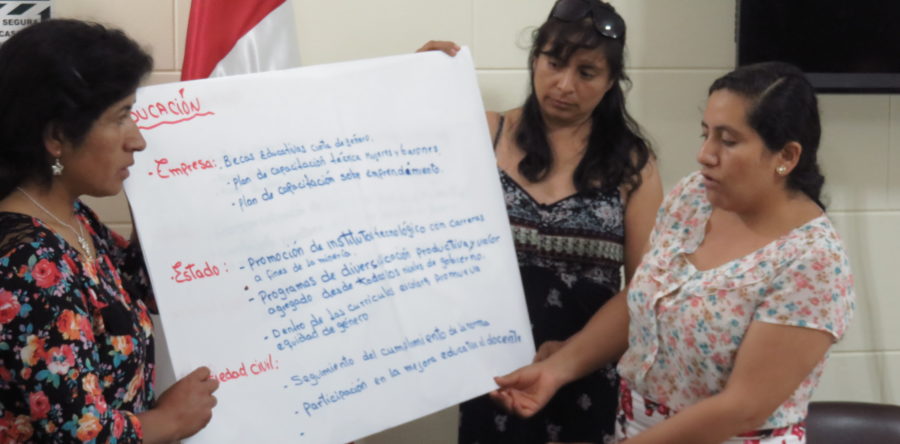 SEGURA
DUCACIÓN
- Empresa: - Becas Educativas cuota de género.
- Plan de capacitación técnica Mujeres y barones
- Plan de capacitación sobre emprendimiento.
- Estado: - Promoción de institutos tecnológico con carreras
a fines de la minería.
- Programas de diversificación productiva y valor
agregado desde todos los niveles de gobierno.
- Dentro de las currículas escolar promueva
equidad de género
iedad Civil: - Seguimiento del cumplimiento de la norma
- Participación en la mejora educativa al docente
-